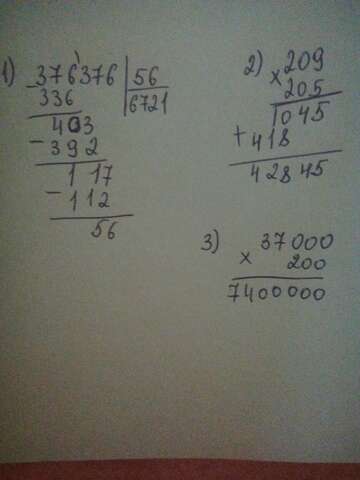 1) 376376 | 56
- 336 | 6721
403
- 392
117
- 112
56
2) × 209
205
1045
+ 418
42845
3) × 37000
200
7400000